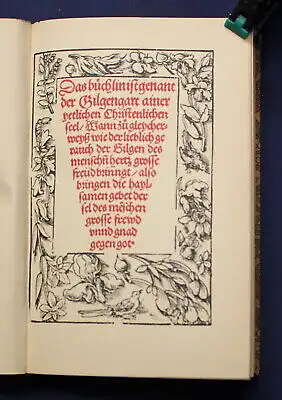 Das büchlin ist genant
der Gilgengart ainer
yetlichen Christenlichen
seel / Wann zů gleycher-
weyß wie der lieblich ge
rauch der Gilgen des
menschñ hertz grosse
freud bringt / also
bringen die hayl-
samen gebet der
sel des mẽschen
grosse frewd
vnnd gnad
gegen got·